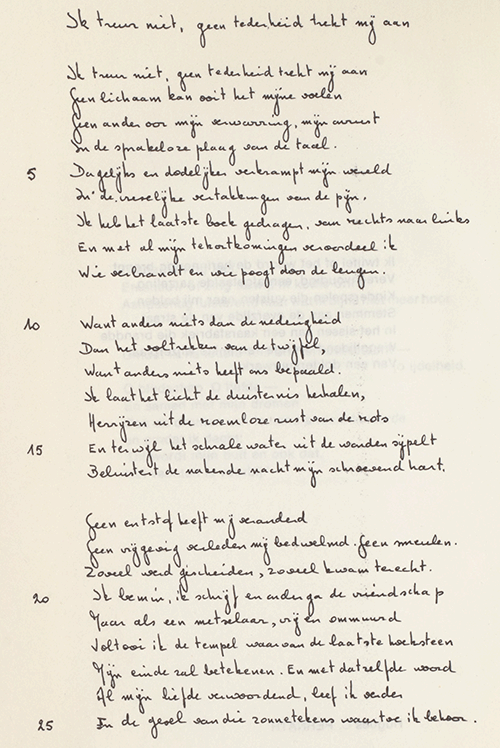 Ik treur niet, geen tederheid trekt mij aan
Ik treur niet, geen tederheid trekt mij aan
Geen lichaam kan ooit het mijne voelen
Geen ander oor mijn verwarring, mijn onrust
In de sprakeloze plaag van de taal.
5 Dagelijks en dodelijker verkrampt mijn wereld
In de vreselijke vertakkingen van de pijn.
Ik heb het laatste boek gedragen, van rechts naar links
En met al mijn tekortkomingen veroordeel ik
Wie verbrandt en wie poogt door de leugen.
10 Want anders niets dan de nederigheid
Dan het voltrekken van de twijfel,
Want anders niets heeft ons bepaald.
Ik laat het licht de duisternis herhalen,
Herrijzen uit de roemloze rust van de rots
15 En terwijl het schrale water uit de wanden sijpelt
Beluistert de nakende nacht mijn schroevend hart.
Geen entstof heeft mij veranderd
Geen vrijgevig verleden mij bedwelmd. Geen smeulen.
Zoveel werd gescheiden, zoveel kwam terecht.
20 Ik bemin, ik schrijf en onderga de vriendschap
Maar als een metselaar, vrij en ommuurd
Voltooi ik de tempel waarvan de laatste hoeksteen
Mijn einde zal betekenen. En met datzelfde woord
Al mijn liefde verwoordend, leef ik verder
25 In de gesel van die zonnetekens waartoe ik behoor.